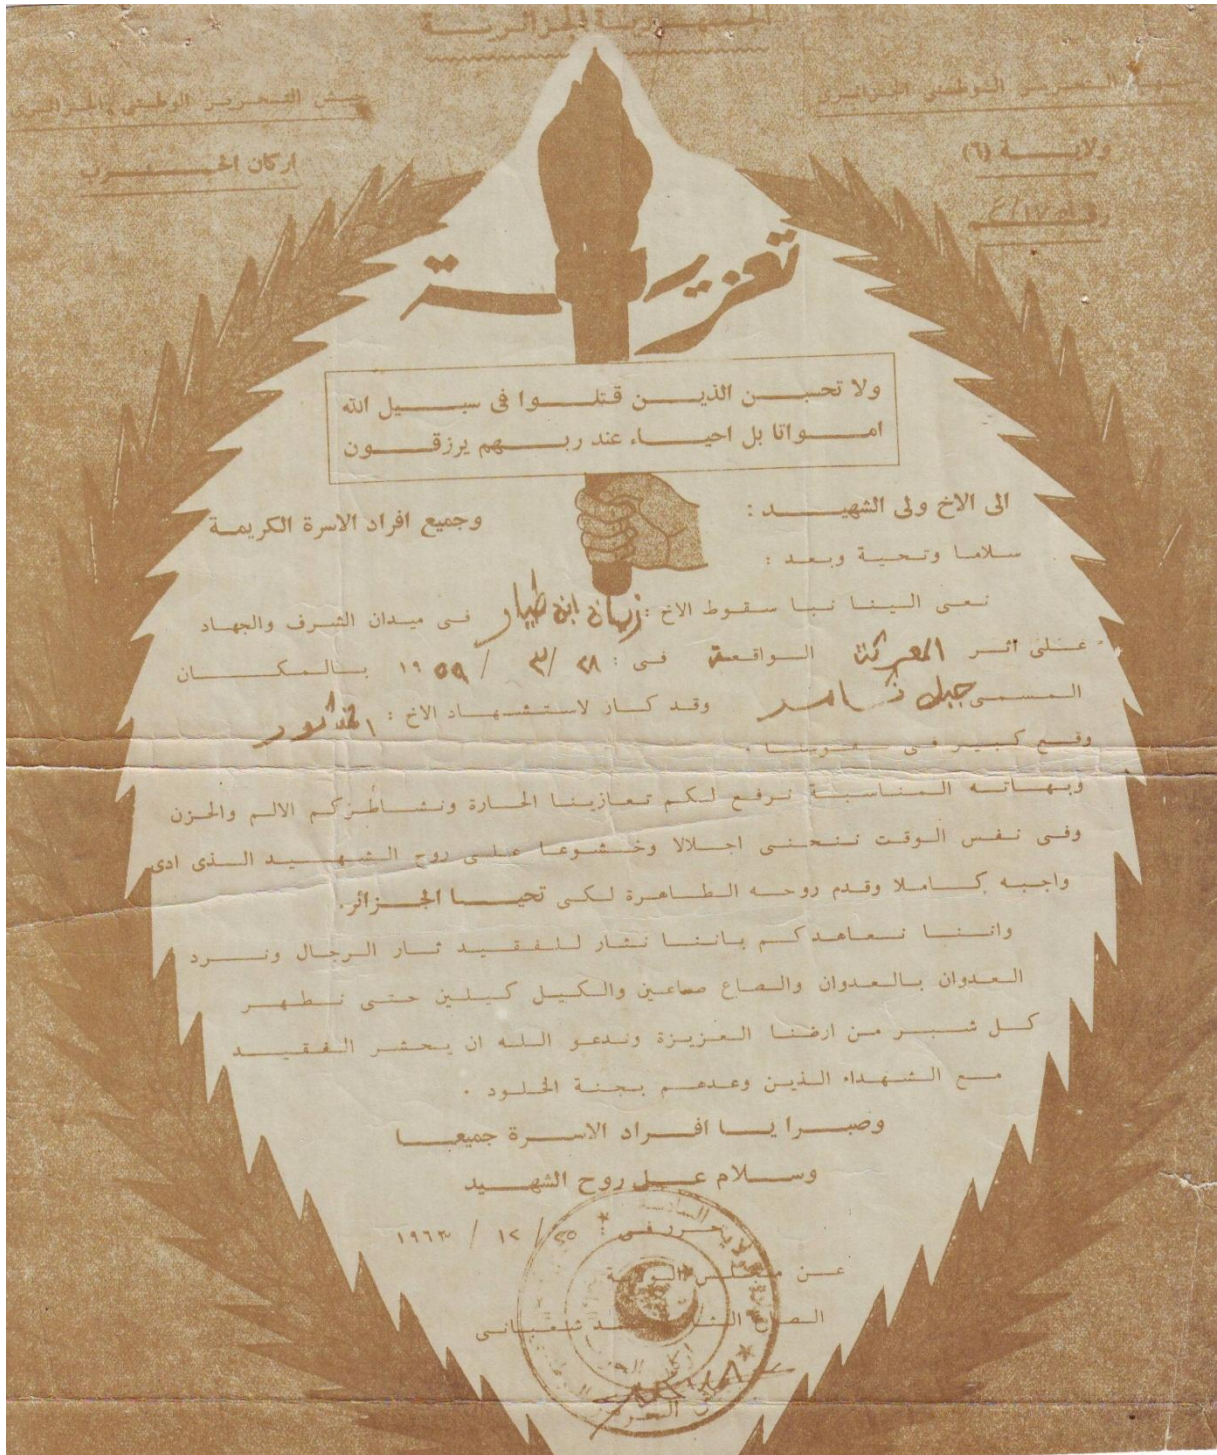 الجمهورية الجزائرية
جبهة التحرير الوطني الجزائري
ولاية (٦)
جيش التحرير الوطني الجزائري
اركان الحرب
تعزية
ولا تحسبن الذين قتلوا في سبيل الله
امواتا بل احياء عند ربهم يرزقون
الى الاخ ولى الشهيد :
وجميع افراد الاسرة الكريمة
سلاما وتحية وبعد :
نعى الينا نبا سقوط الاخ : زيان ابن طيار فى ميدان الشرف والجهاد
على اثر المعركة الواقعة فى : ٢٨ / ٣ / ١٩٥٩ بالمكان
المسمى جبل ثامر وقد كان لاستشهاد الاخ : المذكور
وقع كبير فى نفوسنا .
وبهاته المناسبة نرفع لكم تعازينا الحارة ونشاطركم الالم والحزن
وفى نفس الوقت ننحنى اجلالا وخشوعا على روح الشهيد الذى ادى
واجبه كاملا وقدم روحه الطاهرة لكى تحيا الجزائر.
واننا نعاهدكم باننا نثار للفقيد ثار الرجال ونرد
العدوان بالعدوان والصاع صاعين والكيل كيلين حتى نطهر
كل شبر من ارضنا العزيزة وندعو الله ان يحشر الفقيد
مع الشهداء الذين وعدهم بجنة الخلود .
وصبرا يا افراد الاسرة جميعا
وسلام على روح الشهيد
حرر فى : ٢٥ / ١٢ / ١٩٦٣
عن مجلس الولاية
شعبانى